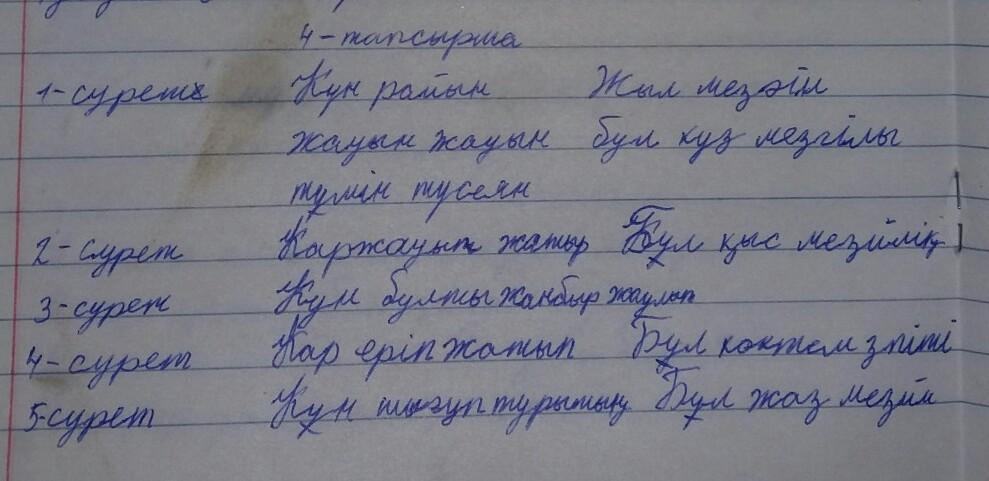 4-тапсырма
1-сурет Күн райын Жыл мезгіл
жауын жауын бұл күз мезгілы
түмін түсеян
2-сурет Қаржауып жатыр Бұл қыс мезйлің
3-сурет Күн бұлты жанбыр жаулып
4-сурет Қар еріп жатып Бұл көктем
5-сурет Күн шығұп тұрытың Бұл жаз мезгіл